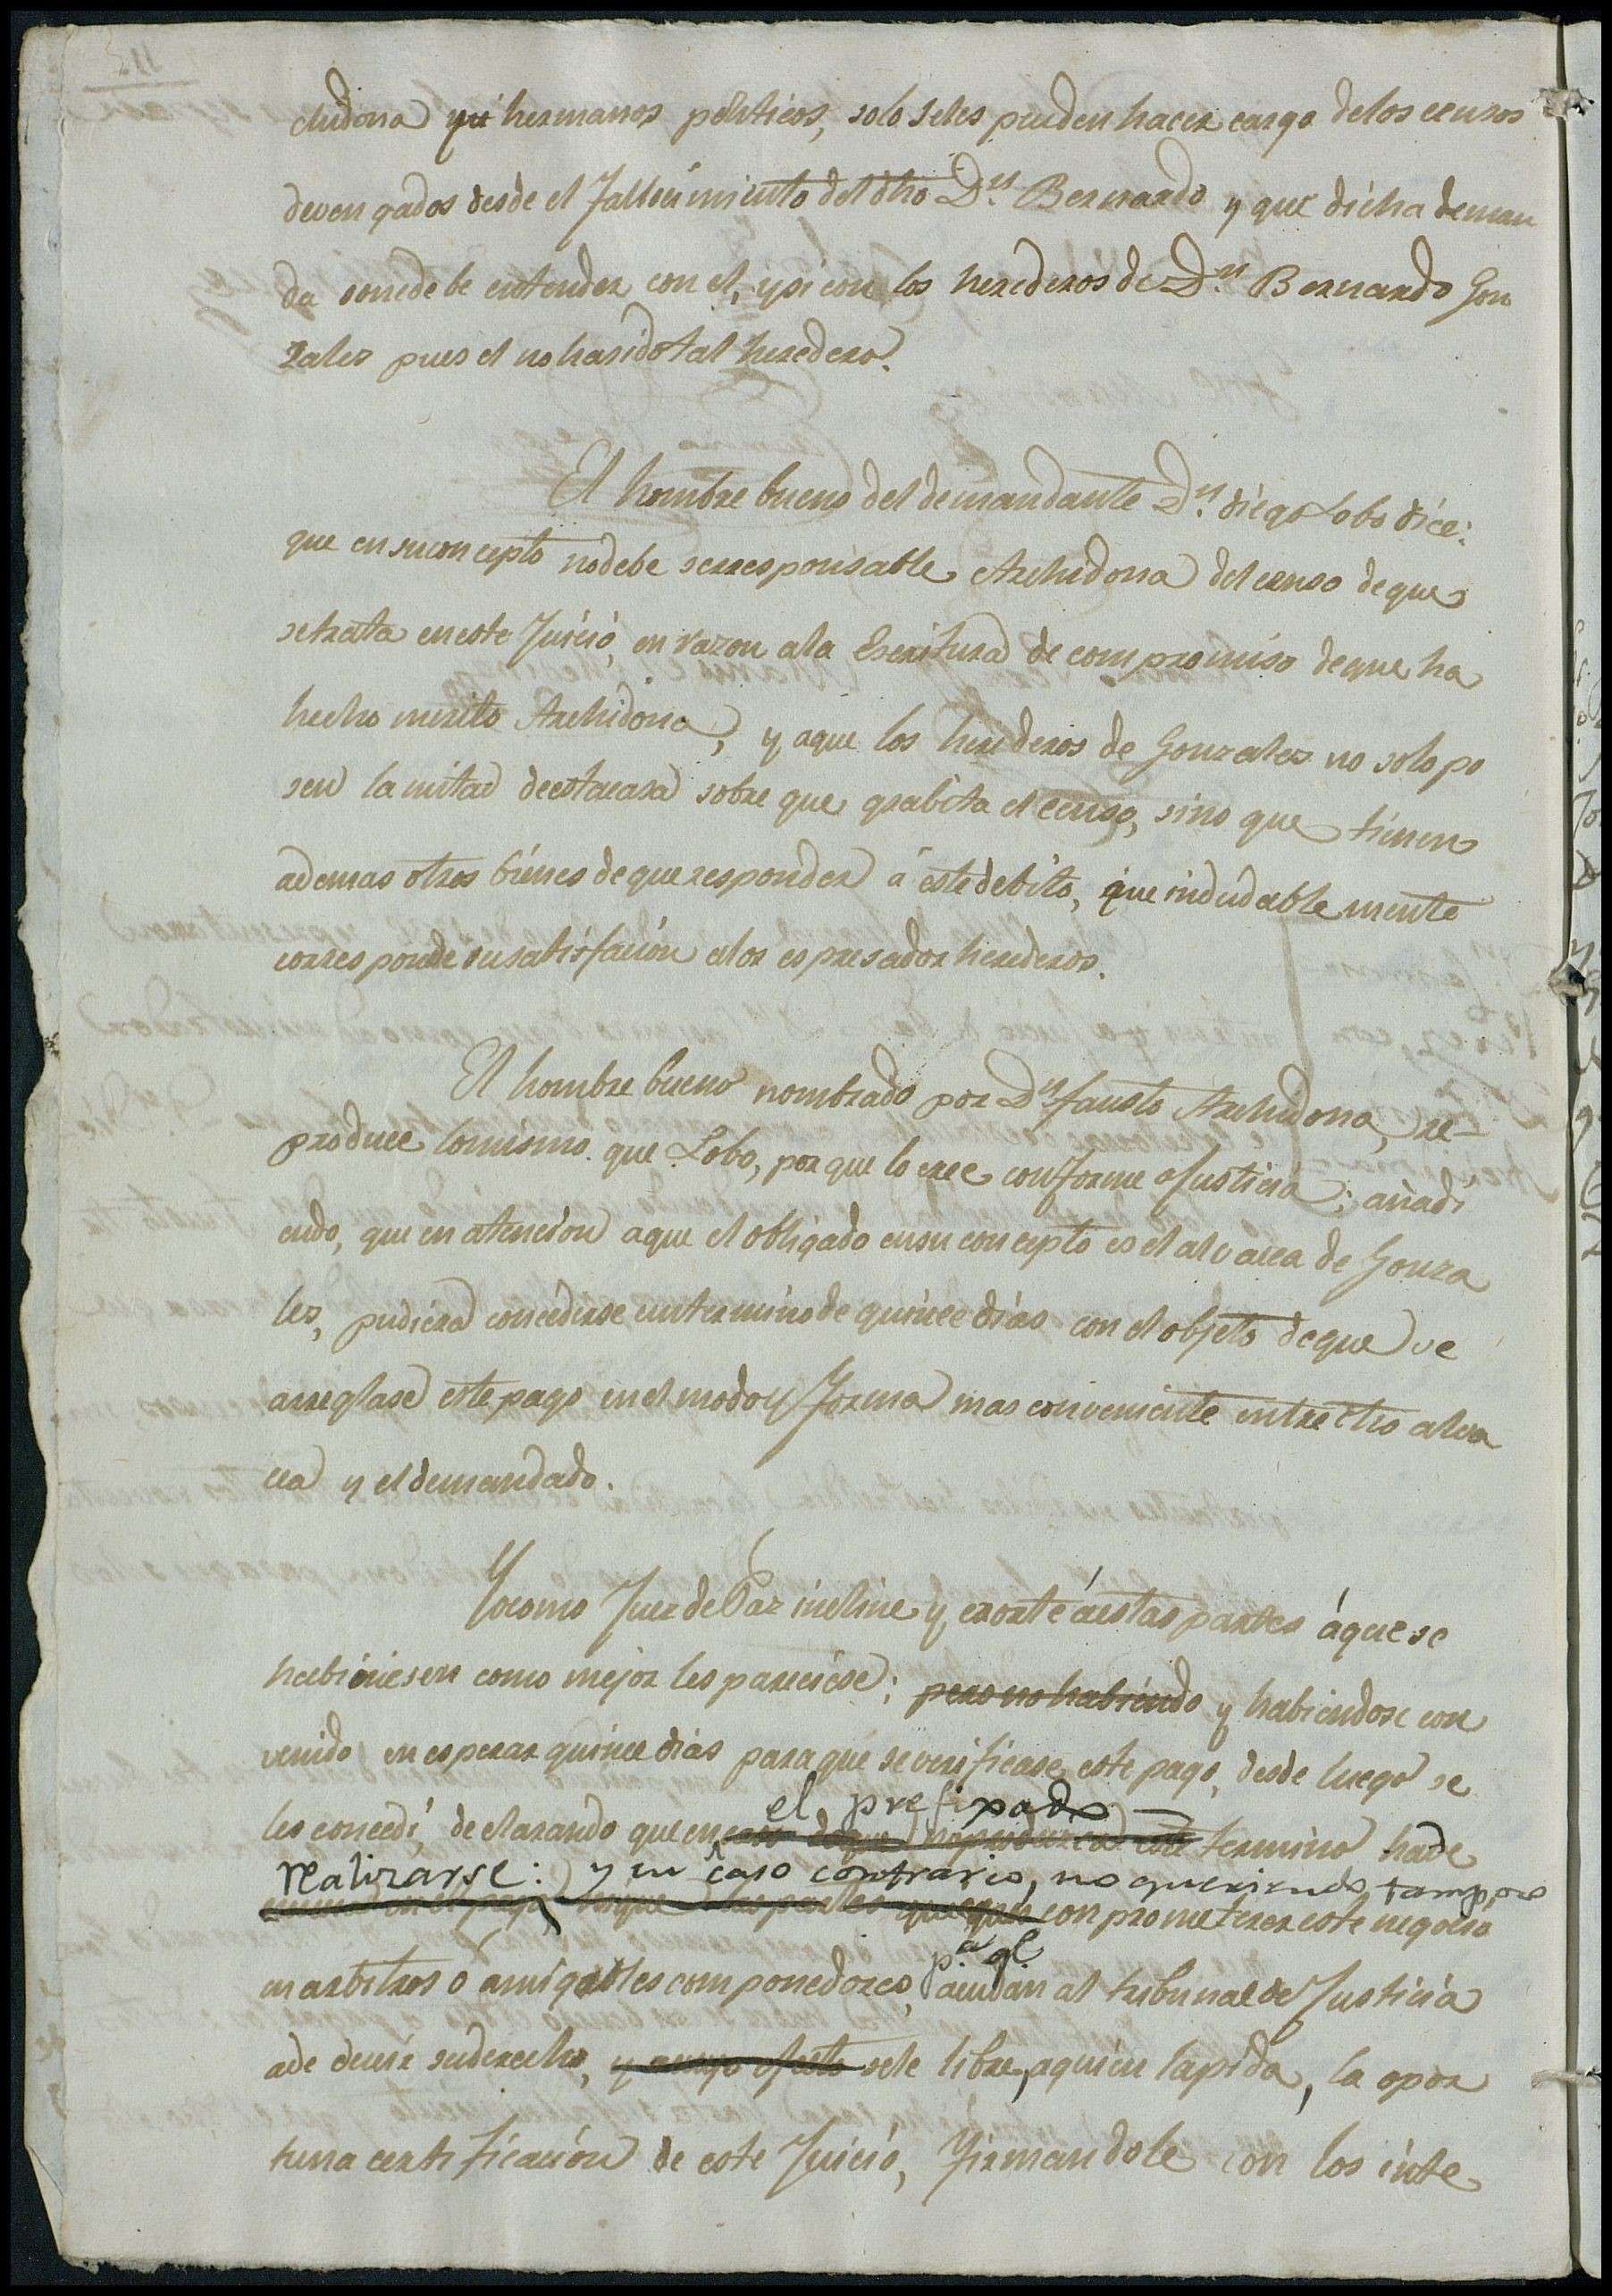 chidona y hermanos politicos, solo seles pueden hacer cargo delos censos
devengados desde el fallecimiento del dho Dn. Bernardo y que dicha deman
da no se debe entender con el, y si con los herederos de Dn. Bernardo Gon
zalez pues el no ha sido tal heredero.
El hombre bueno del demandante Dn. diego Lobo dice:
que en su concepto no debe ser responsable Archidona del censo de que
se trata en este Juicio, en razon a la Escritura de compromiso de que ha
hecho merito Archidona, y a que los herederos de Gonzalez no solo po
seen la mitad de esta casa sobre que grabita el censo, sino que tienen
ademas otros bienes de que responder á este debito, que indudablemente
corresponde su satisfacion a los espresados herederos.
El hombre bueno nombrado por Dn. fausto Archidona, re-
produce lo mismo que Lobo, por que lo cree conforme a Justicia; añadi
endo, que en atencion a que el obligado en su concepto es el alvacea de Gonza
lez, pudiera concederse un termino de quince dias con el objeto de que se
arreglase este pago en el modo y forma mas conveniente entre dho alva
cea y el demandado.
Yo como Juez de Paz incline y exorté á estas partes á que se
habiniesen como mejor les pareciese; pero no habiendo y habiendose con
venido en esperar quince dias para que se verificase este pago, desde luego se
el prefixado
les concedí, declarando que en caso de que termino ha de
realizarse: y en caso contrario, no queriendo tampoco
en el pago las partes conprometerer este negocio
pa. ql.
en arbitros ó amigables componedores, acudan al tribunal de Justicia
a deducir su derecho, y a cuyo efecto se le libre, a quien la pida, la opor
tuna certificacion de este Juicio, firmandole con los inte